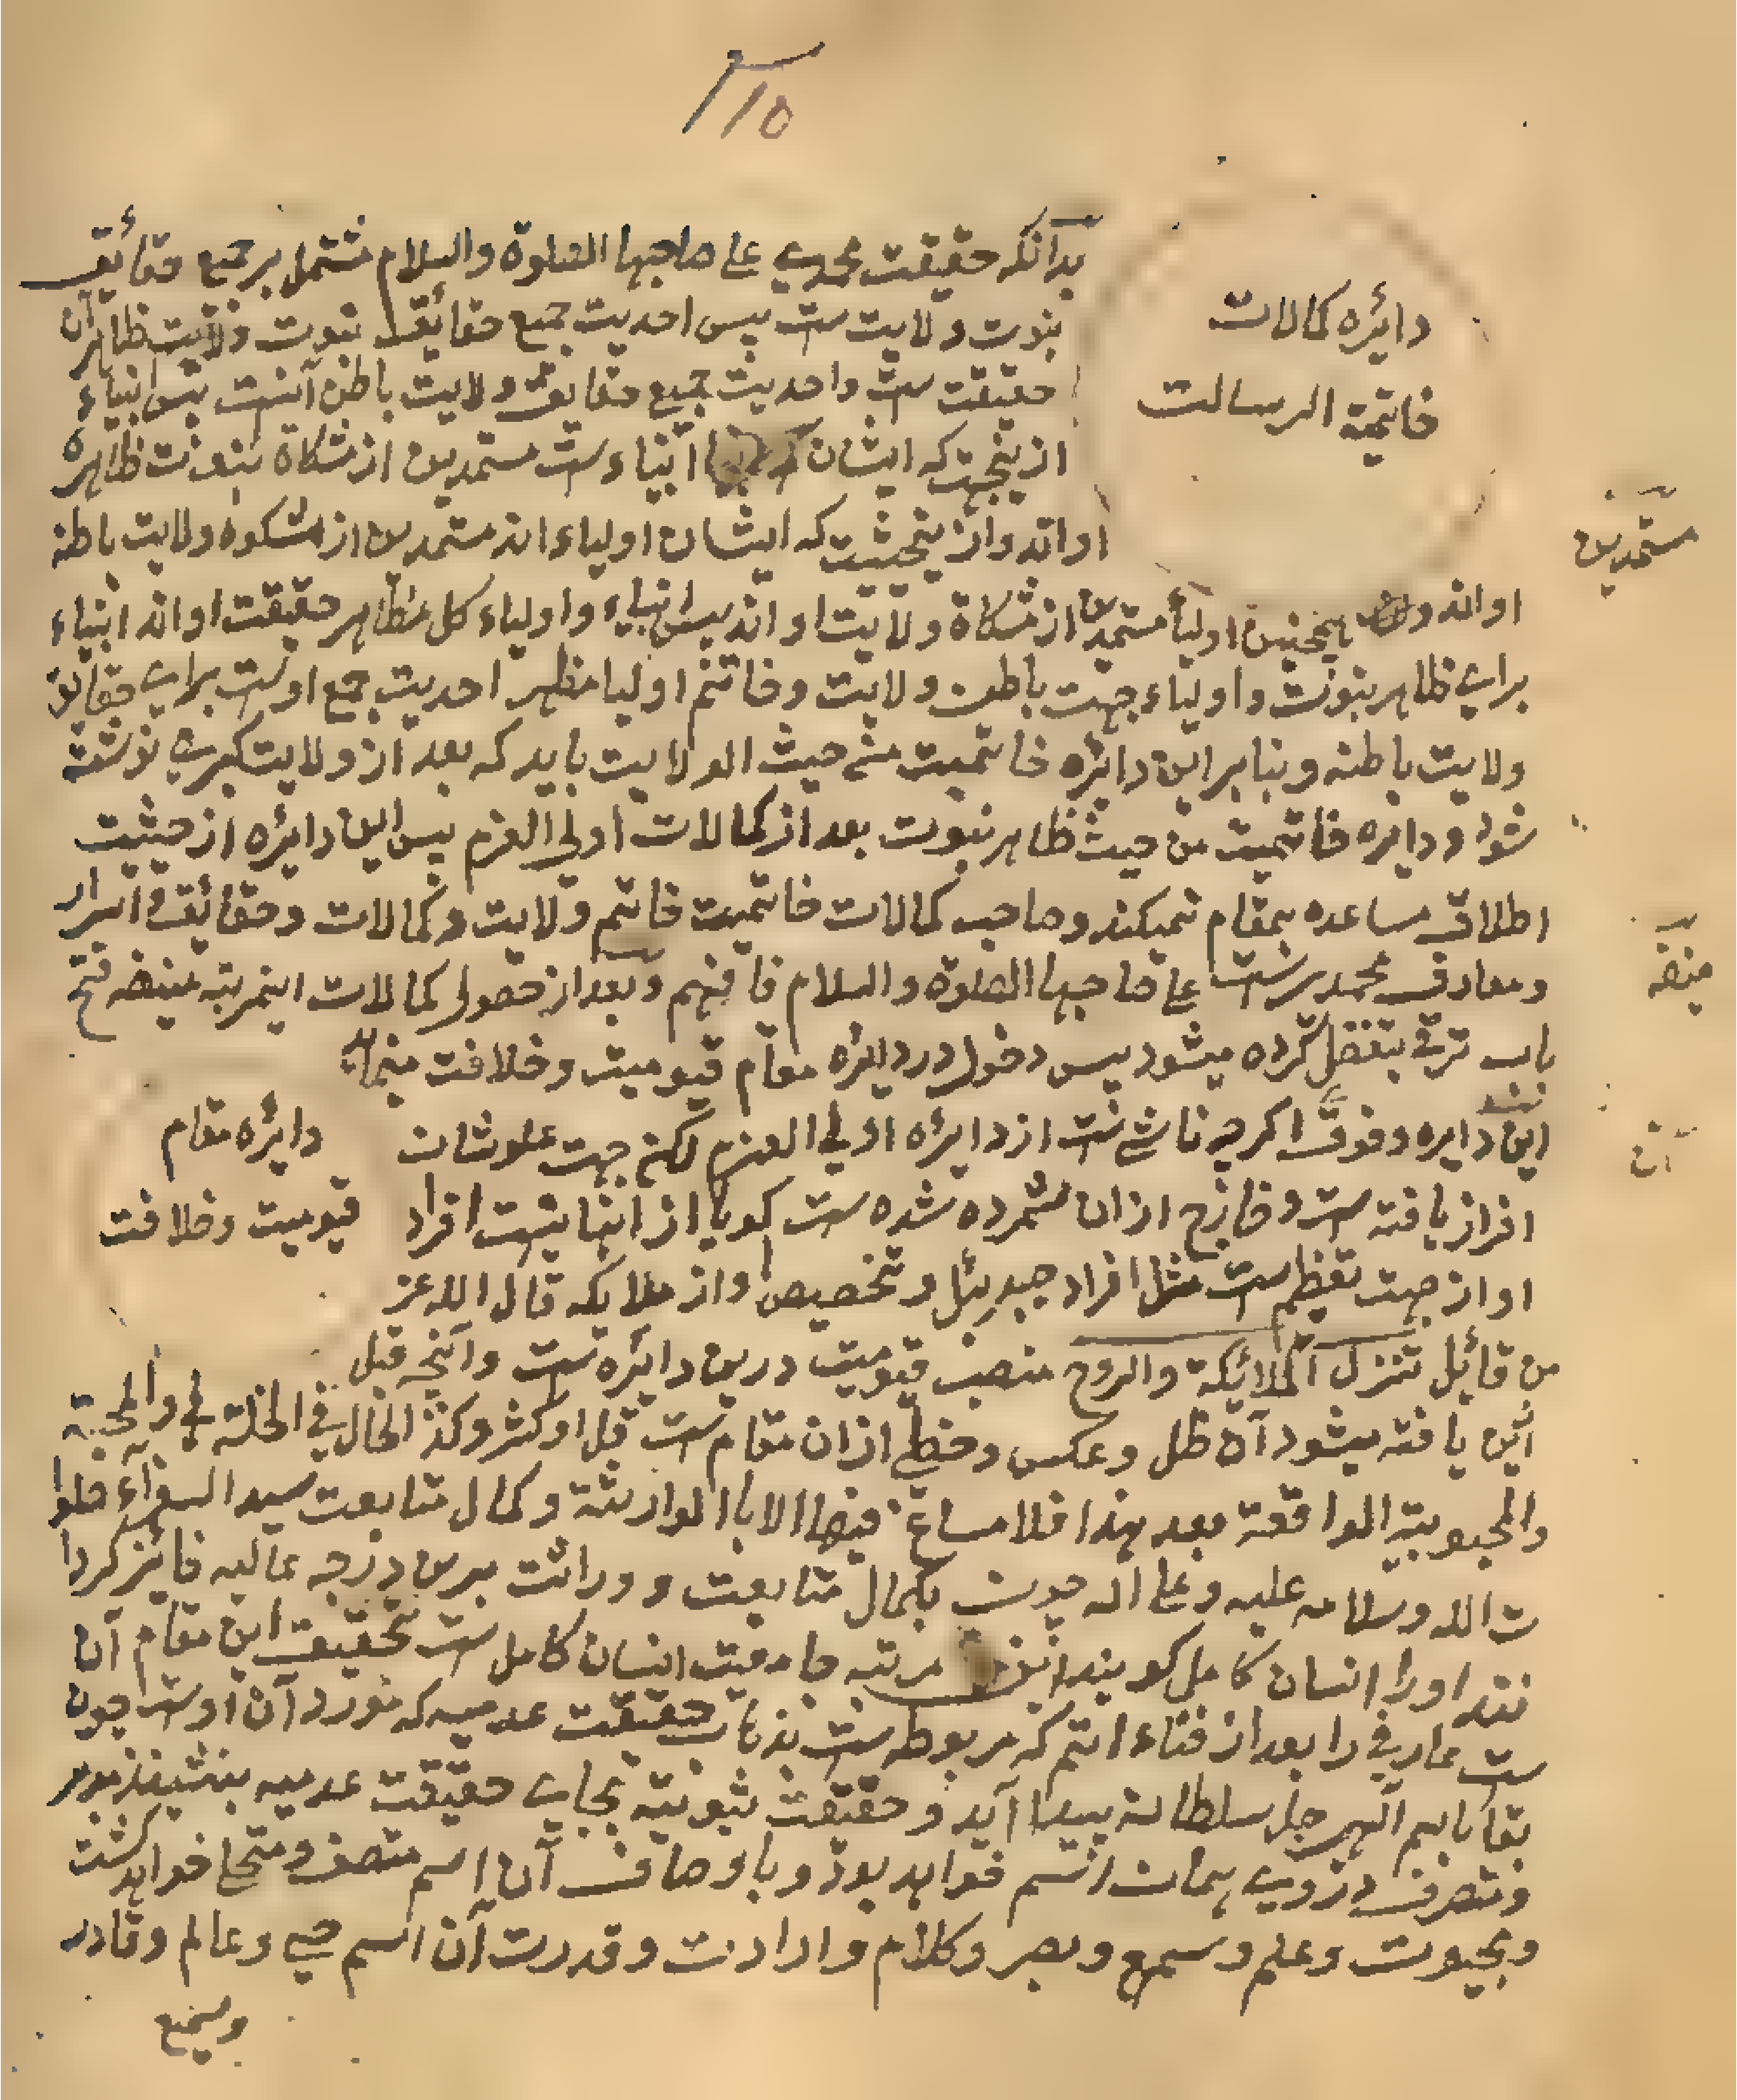 ۱۵
دایرۀ کمالات
خاتمیة الرسالت
بدانکه حقیقت محمدی علی صاحبها الصلوة والسلام مشتمل بر جمیع حقائق
نبوت ولایت ست پس احدیت جمیع حقائق نبوت ظاهر آن
حقیقت ست واحدیت جمیع حقایق ولایت باطن آنست پس انبیاء
ازینجهت که ایشان انبیاء ست مستمدین از مشکاة نبوت ظاهره
او اند و ازینحیثیت که ایشان اولیاء اند مستمدین از مشکوه ولایت باطنه
مستمدین
او اند و همچنین اولیأ مستمدین از مشکاة ولایت او اند پس انبیاء و اولیاء کل مظاهر حقیقت او اند انبیاء
برای ظاهر نبوت و اولیاء جهت باطن ولایت و خاتم اولیا مظهر احدیت جمع اوست برای حقایق
ولایت باطنه و بنا برابن دایرۀ خاتمیت من حیث الولایت باید که بعد از ولایت کبری نوشته
شود و دایره خاتمیت من حیث ظاهر نبوت بعد از کمالات اولی العزم پس این دایره از حیثیت
اطلاق مساعده بمقام نمیکند و صاحب کمالات خاتمیت خاتم ولایت و کمالات و حقائق و اسرار
و معارف محمدیست علی صاحبها الصلوة والسلام فافهم و بعد از حصول کمالات اینمرتبه منصه فتح
منصه
باب ترقی بتفضل کرده میشود پس دخول در دایره مقام قیومیت و خلافت مینماید
دایرۀ مقام
قیومیت و خلافت
این دایره و فوق اکرچه ناشی ست از دایرۀ اولی العزم لکن جهت علو شان
آن
افراز یافته ست و خارج ازان شمرده شده ست کویا از انها نیست افراد
او از جهت تعظیم ست مثل افراد جبرئیل و تخصیص او از ملایکه قال الله عز
من قائیل تنزل الملائیکة والروح منصب قیومیت درین دایره ست و آنچه قبل
این یافته میشود آن ظل و عکس و حظی ازان مقام ست قل او کثر و کذا الحال فی الخلة و المحبة
والمحبوبیة الواقعة بعد هذا فلا مساغ فیها الا با الوارثة و کمال متابعت سید السفرآء صلوا
ت الله و سلامه علیه و علی اله چون بکمال متابعت و وراثت برین درجه عالیه فایز کردا
نند او را انسان کامل کویند مرتبه جامعیت انسان کامل ست تحقیق این مقام آن
ست عارفی را بعد از فناء اتم که مربوط ست بذات حقیقت عدمیه که مورد آن اوست چون
بقا باسم الهی جل سلطانه پیدا آید و حقیقت ثبوتیه بجای حقیقت عدمیه بنشیند
و متصرف در وی همان اسم خواهد بود و باوصاف آن اسم متصف و متجلی خواهد کشت
و بحیوت و علم و سمع و بصر و کلام و ارادت و قدرت آن اسم حی و عالم و قادر
و سمیع